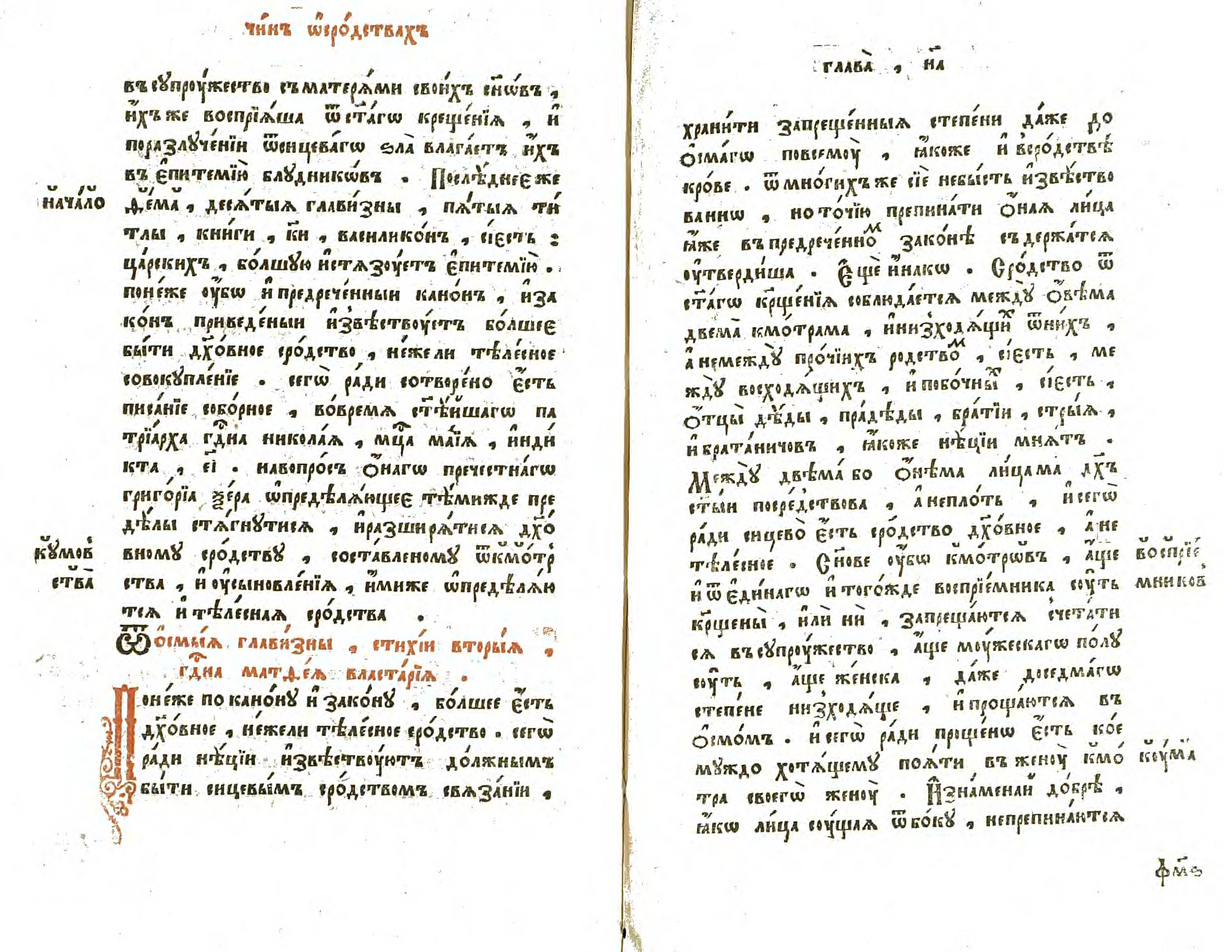 чи́нъ ѡ҆сро́дствахъ
въсупроу́жество съматеря́ми свои́хъ сн҃ѡ́въ ,
и҆́хъже воспрїѧ́ша ѿст҃а́гѡ креще́нїѧ , и҆
поразлуче́нїи ѿсицева́гѡ ѕла̀ влага́етъ и҆́хъ
въ є҆питемїю̀ блудникѡ́въ . Послѣ́днееже
нача́ло
ѳ҆́ема̀ , десѧ́тыѧ главизны , пѧ́тыѧ ти́
тлы , кни́ги , к҃и , василико́нъ , сїе́сть :
ца́рскихъ , бо́лшую и҆стѧзоу́етъ є҆питемїю̀ .
поне́же оу҆́бѡ и҆предрече́нныи кано́нъ , и҆за
ко́нъ приведе́ныи и҆звѣ́ствоуетъ бо́лшее
бы́ти дх҃о́вное сро́дство , не́жели тѣле́сное
совокупле́нїе . сегѡ̀ ра́ди сотворено̀ є҆́сть
писа́нїе собо́рное , во́время ст҃ѣ́йшагѡ па
трїа́рха гд҇и́на никола́ѧ , мц҇а ма́їѧ , и҆нди́
кта , є҃і . навопро́съ ѻ҆́нагѡ пречестна́гѡ
григо́рїа ѯе́ра ѡ҆предѣлѧ́ющее тѣ́мижде пре
дѣ́лы стѧгну́тисѧ , и҆разширѧ́тисѧ дх҃о́
кꙋ́мов
вному сро́дству , соста́вленому ѿкмо́тр
ства̀
ства , и҆оусыновле́нїѧ , и҆́миже ѡ҆предѣлѧ́ю
тсѧ и҆тѣле́снаѧ сро́дства .
Ѿѻсмы́ѧ главизны , стихі́и вторы́ѧ ,
гд҇и́на матѳе́ѧ власта́рїѧ .
Поне́же по кано́ну и҆ зако́ну , бо́лшее є҆́сть
дх҃о́вное , не́жели тѣле́сное сро́дство . сегѡ̀
ра́ди нѣ́цїи и҆звѣ́ствоуютъ до́лжнымъ
бы́ти сицевы́мъ сро́дствомъ свѧ́зани ,
глава̀ , н҃а
храни́ти запреще́нныѧ степе́ни да́же до
ѻ҆сма́гѡ повсемоу̀ , ꙗ҆́коже и҆ всро́дствѣ
кро́ве . ѿмно́гихъже сїѐ небы́сть и҆звѣ́ство
ваннѡ , ното́чїю препина́ти ѻ҆́наѧ ли́ца
ꙗ҆́же въпредрече́нноⷨ зако́нѣ съдержа́тсѧ
оу҆тверди́ша . Є҆щѐ и҆́накѡ . Сро́дство ѿ
ст҃а́гѡ кр҇ще́нїѧ соблюда́етсѧ между̀ ѻ҆бѣ́ма
двема̀ кмо́трама , и҆низходѧ́щиⷯ ѿни́хъ ,
а҆ немежду̀ про́чїихъ родствоⷨ , сїе́сть , ме
жду̀ восходѧ́щихъ , и҆побо́чныⷯ , сїе́сть ,
ѻ҆тцы̀ дѣ́ды , пра́дѣды , бра́тїи , стры́ѧ ,
и҆брата́ничовъ , ꙗ҆́коже нѣ́цїи мнѧ́тъ .
Между̀ двѣма́ бо ѻ҆нѣ́ма лица́ма дх҃ъ
ст҃ы́и посре́дствова , а҆непло́ть , и҆сегѡ̀
ра́ди сицево̀ є҆́сть сро́дство дх҃о́вное , а҆не
тѣле́сное . Сн҃ове оу҆́бѡ кмо́трѡвъ , а҆́ще
воспрїе́
и҆ѿ є҆ди́нагѡ и҆тогожде воспрїе́мника соу́ть
мников
кр҇щены̀ , и҆лѝ нѝ , запреща́ютсѧ счета́ти
сѧ въсупроу́жество , а҆́ще моу́жескагѡ по́лу
соу́ть , а҆́ще же́нска , да́же доседма́гѡ
степе́не низходѧ́ще , и҆проща́ютсѧ въ
ѻ҆смо́мъ . и҆сегѡ̀ ра́ди проще́нѡ є҆́сть ко́е
му́ждо хотѧ́щему поѧ́ти въженоу̀ кмо́
коума̀
тра своегѡ̀ женоу̀ . И҆зна́менай до́брѣ ,
ꙗ҆́кѡ ли́ца соу́щаѧ ѿбо́ку , непрепина́ютсѧ
ф҃мѕ